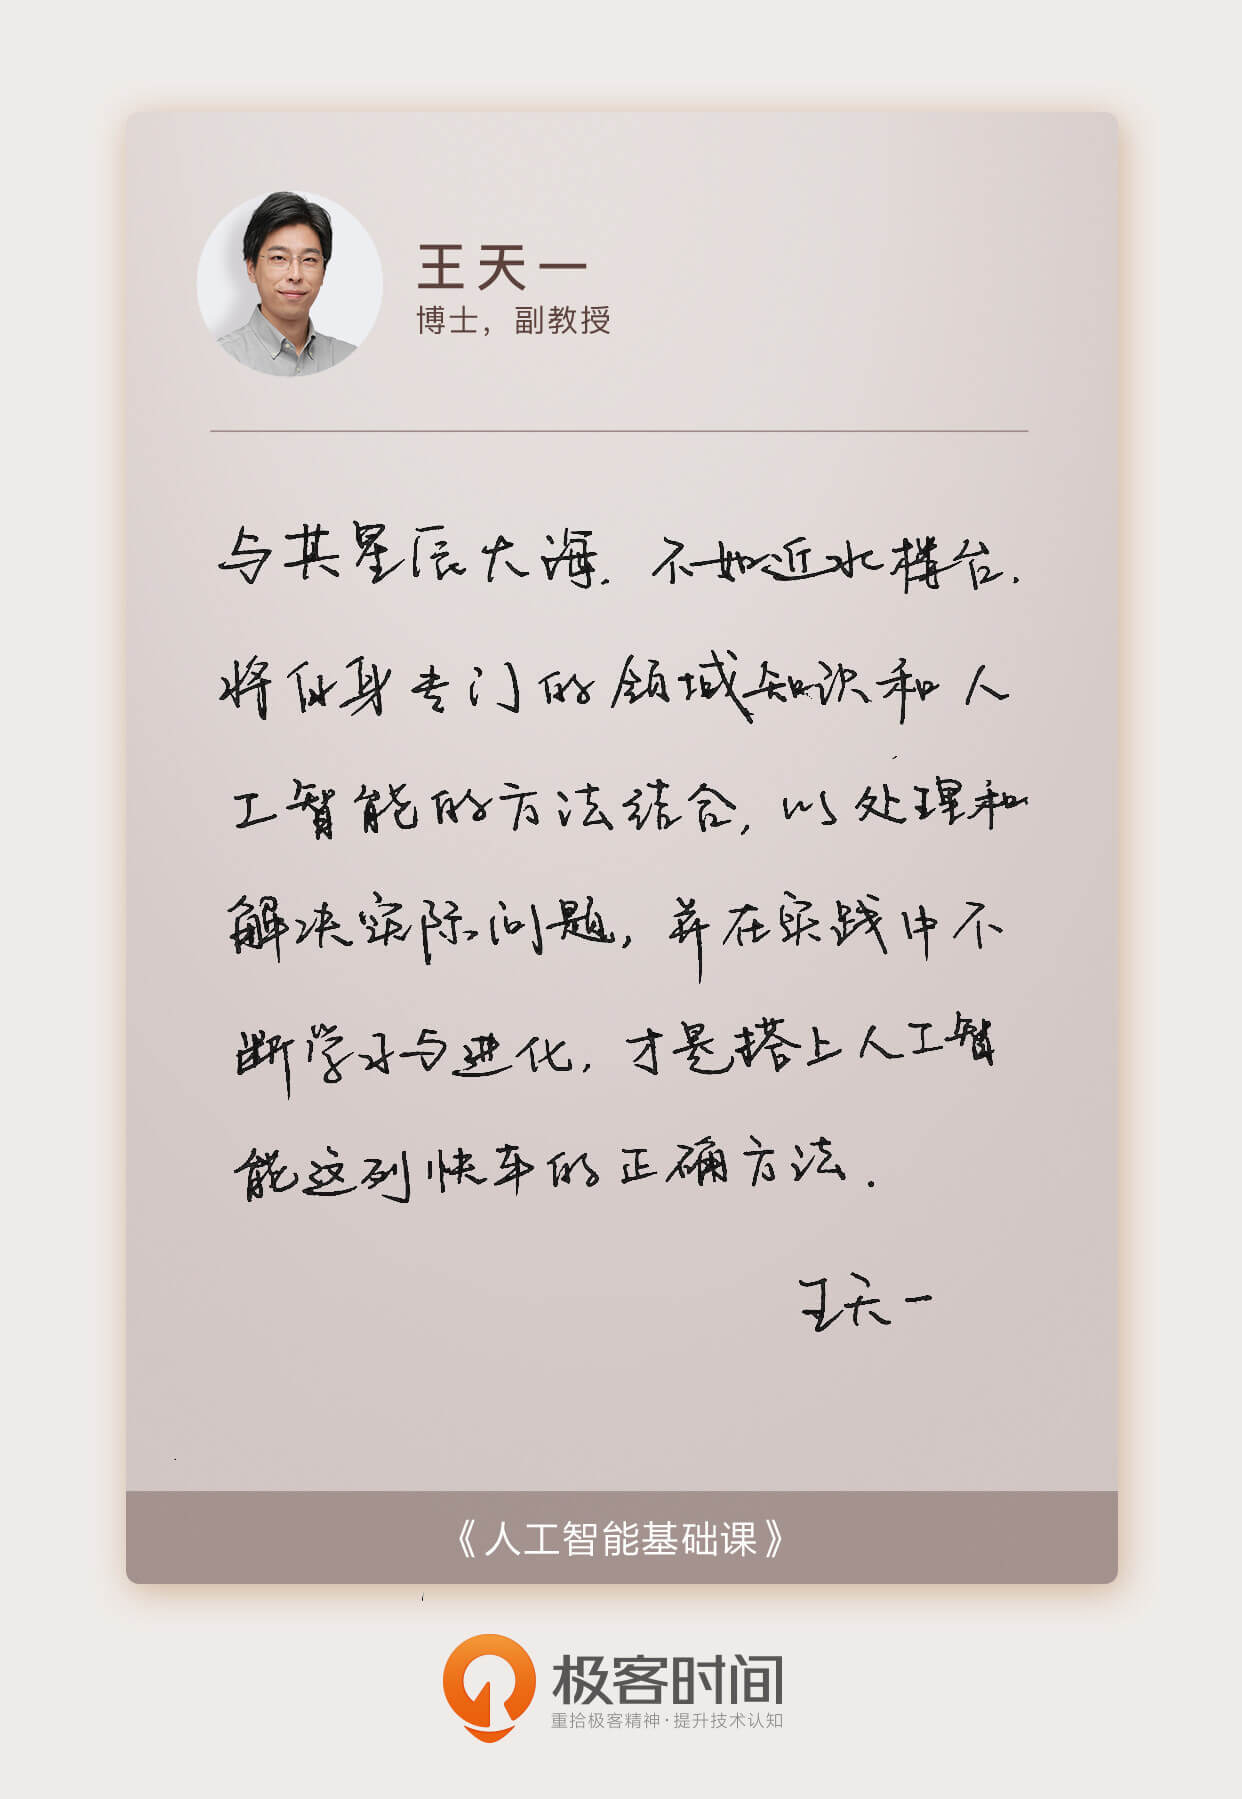 王天一
博士，副教授
与其星辰大海，不如近水楼台。
将自身专门的领域知识和人
工智能的方法结合，以处理和
解决实际问题，并在实践中不
断学习与进化，才是搭上人工智
能这列快车的正确方法。
王天一
《人工智能基础课》
极客时间
重拾极客精神·提升技术认知